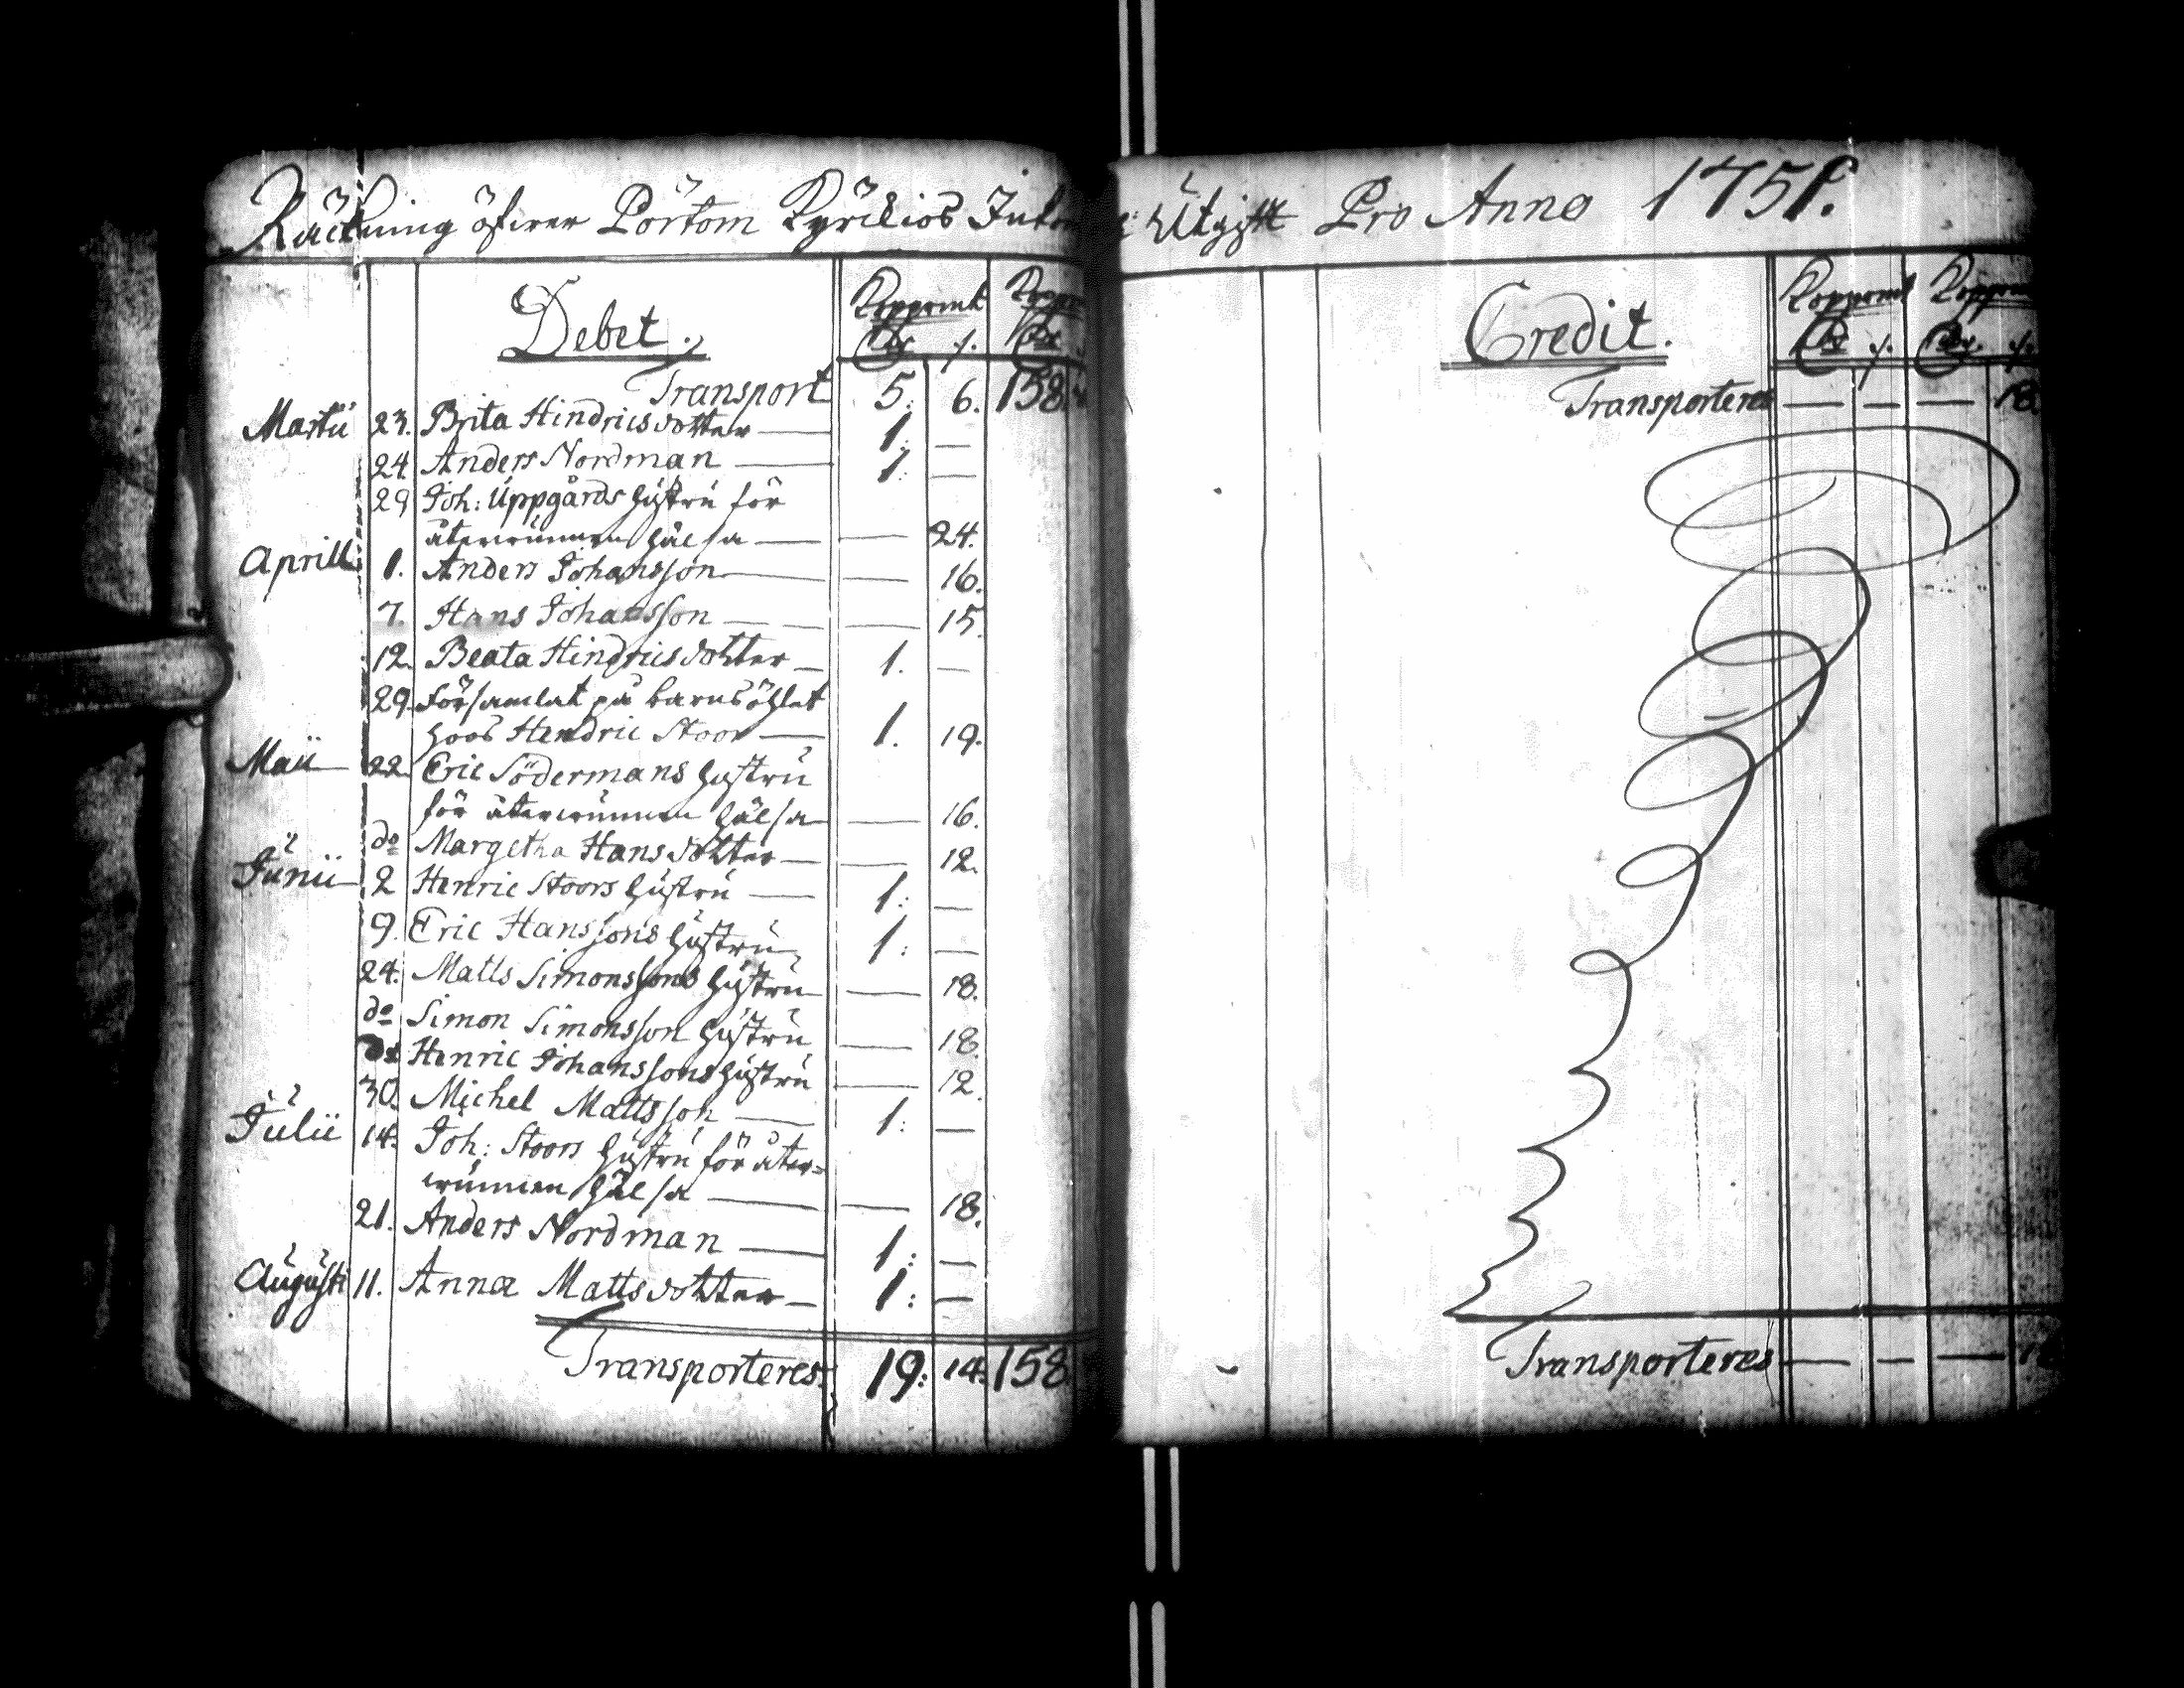 Räckning öfwer Pörtom Kyrckios Inkom
& Utgift Pro Anno 1751.
Debet.
Kopparmt Koppar
Dr ⁒ Dr
Transport 5: 6. 158.
Martii 23. Brita Hindricsdotter — 1: —
24 Anders Nordman — 1: —
29 Joh: Uppgårds hustru för
återwunnen hälsa — — 24.
Aprill 1. Anders Johansson — — 16.
7. Hans Johansson — — 15.
12. Beata Hindricsdotter — 1. —
29. Församlat på barnsöhlet
hoos Hendric Stoor — 1. 19.
Maii 22 Eric Södermans hustru
för återwunnen hälsa — — 16.
do Margetha Hansdotter — — 12.
Junii 2 Henric Stoors hustru — 1: —
9. Eric Hanssons hustru 1: —
24. Matts Simonssons hustru — — 18.
do Simon Simonsson hustru — 18.
do Henric Johanssons hustru — 12.
30. Michel Mattsson — 1: —
Julii 14. Joh: Stoors hustru för åter=
wunnen hälsa — — 18.
21. Anders Nordman — 1: —
Augusti 11. Anna Mattsdotter — 1: —
Transporteres. 19: 14. 158
Credit.
Kopparmt Kopparm
Dr ⁒ Dr ⁒
Transporteres — — — 18.
Transporteres — — —